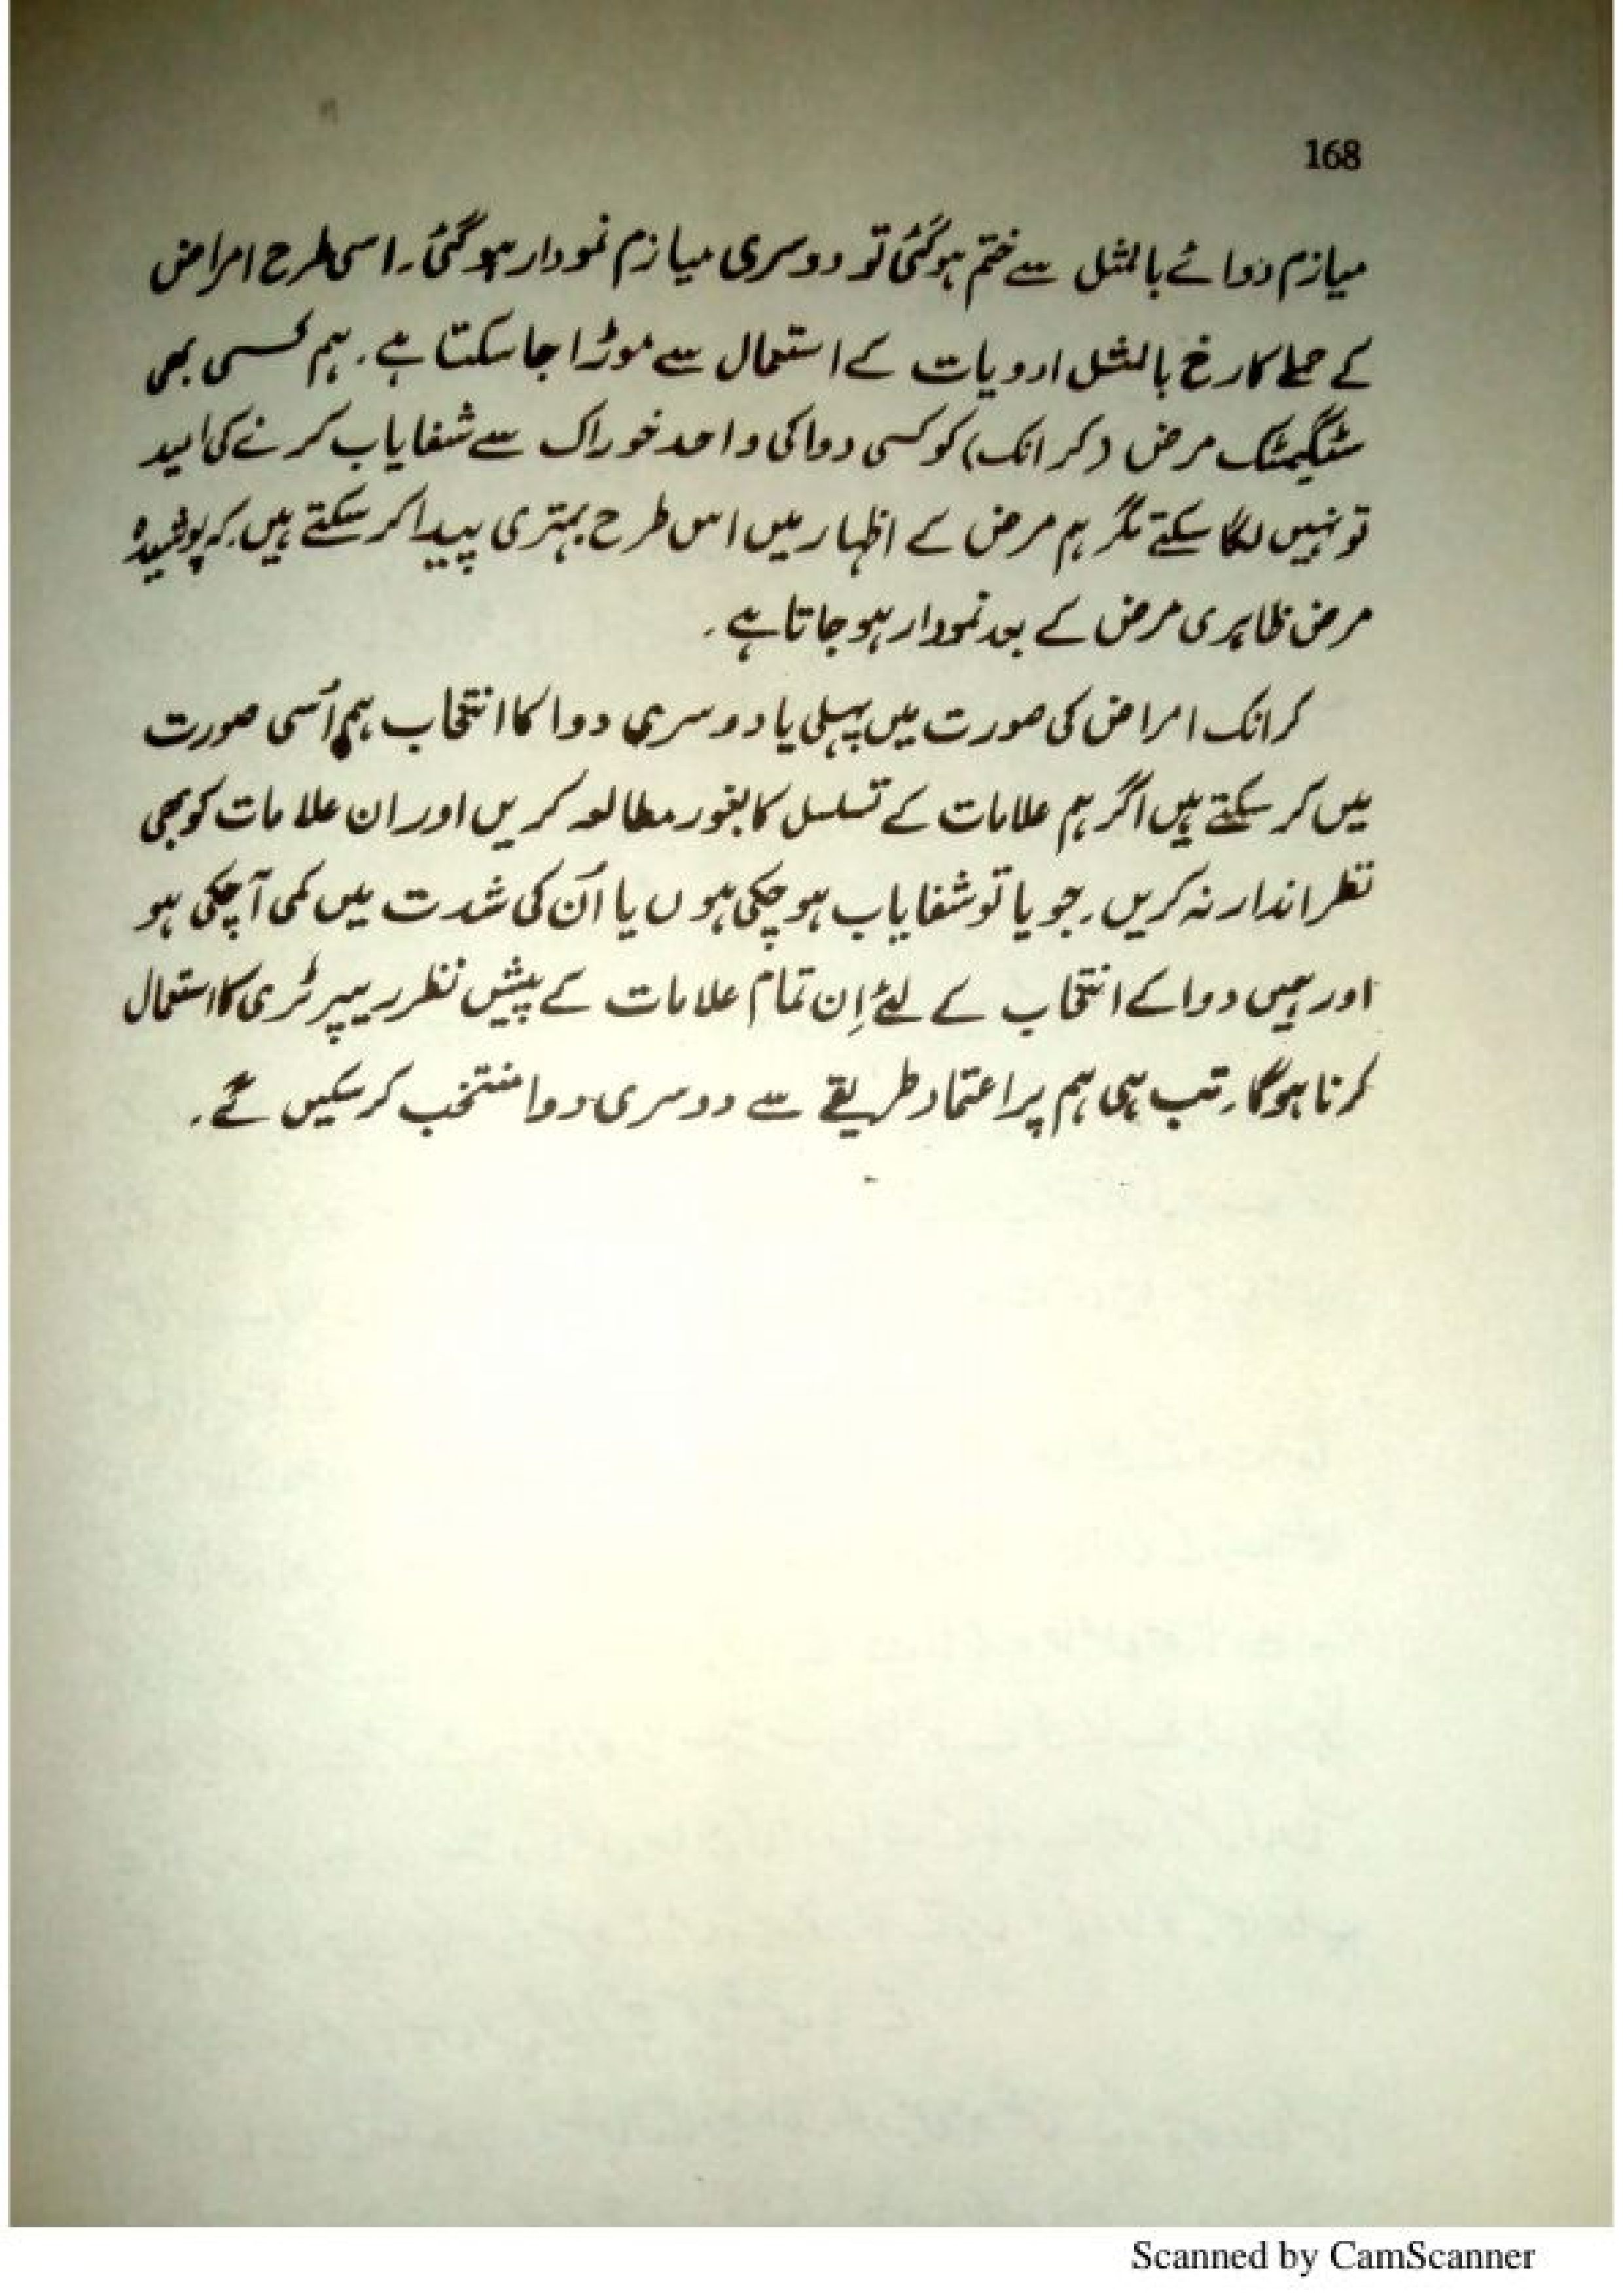 168
میازم دوائے بالمثل سے ختم ہوگئی تو دوسری میازم نمودار ہوگئی۔ اسی طرح امراض
کے حملے کا رخ بالمثل ادویات کے استعمال سے موڑا جاسکتا ہے۔ ہم کسی بھی
سٹگمیٹک مرض (کرانک) کو کسی دوا کی واحد خوراک سے شفایاب کرنے کی امید
تو نہیں لگا سکتے مگر ہم مرض کے اظہار میں اس طرح بہتری پیدا کر سکتے ہیں کہ پوشیدہ
مرض ظاہری مرض کے بعد نمودار ہو جاتا ہے۔
کرانک امراض کی صورت میں پہلی یا دوسری دوا کا انتخاب ہم اُسی صورت
میں کر سکتے ہیں اگر ہم علامات کے تسلسل کا بغور مطالعہ کریں اور ان علامات کو بھی
نظر انداز نہ کریں۔ جو یا تو شفایاب ہو چکی ہوں یا اُن کی شدت میں کمی آچکی ہو
اور ہمیں دوا کے انتخاب کے لئے اِن تمام علامات کے پیش نظر ریپرٹری کا استعمال
کرنا ہوگا۔ تب ہی ہم پر اعتماد طریقے سے دوسری دوا منتخب کر سکیں گے۔
Scanned by CamScanner